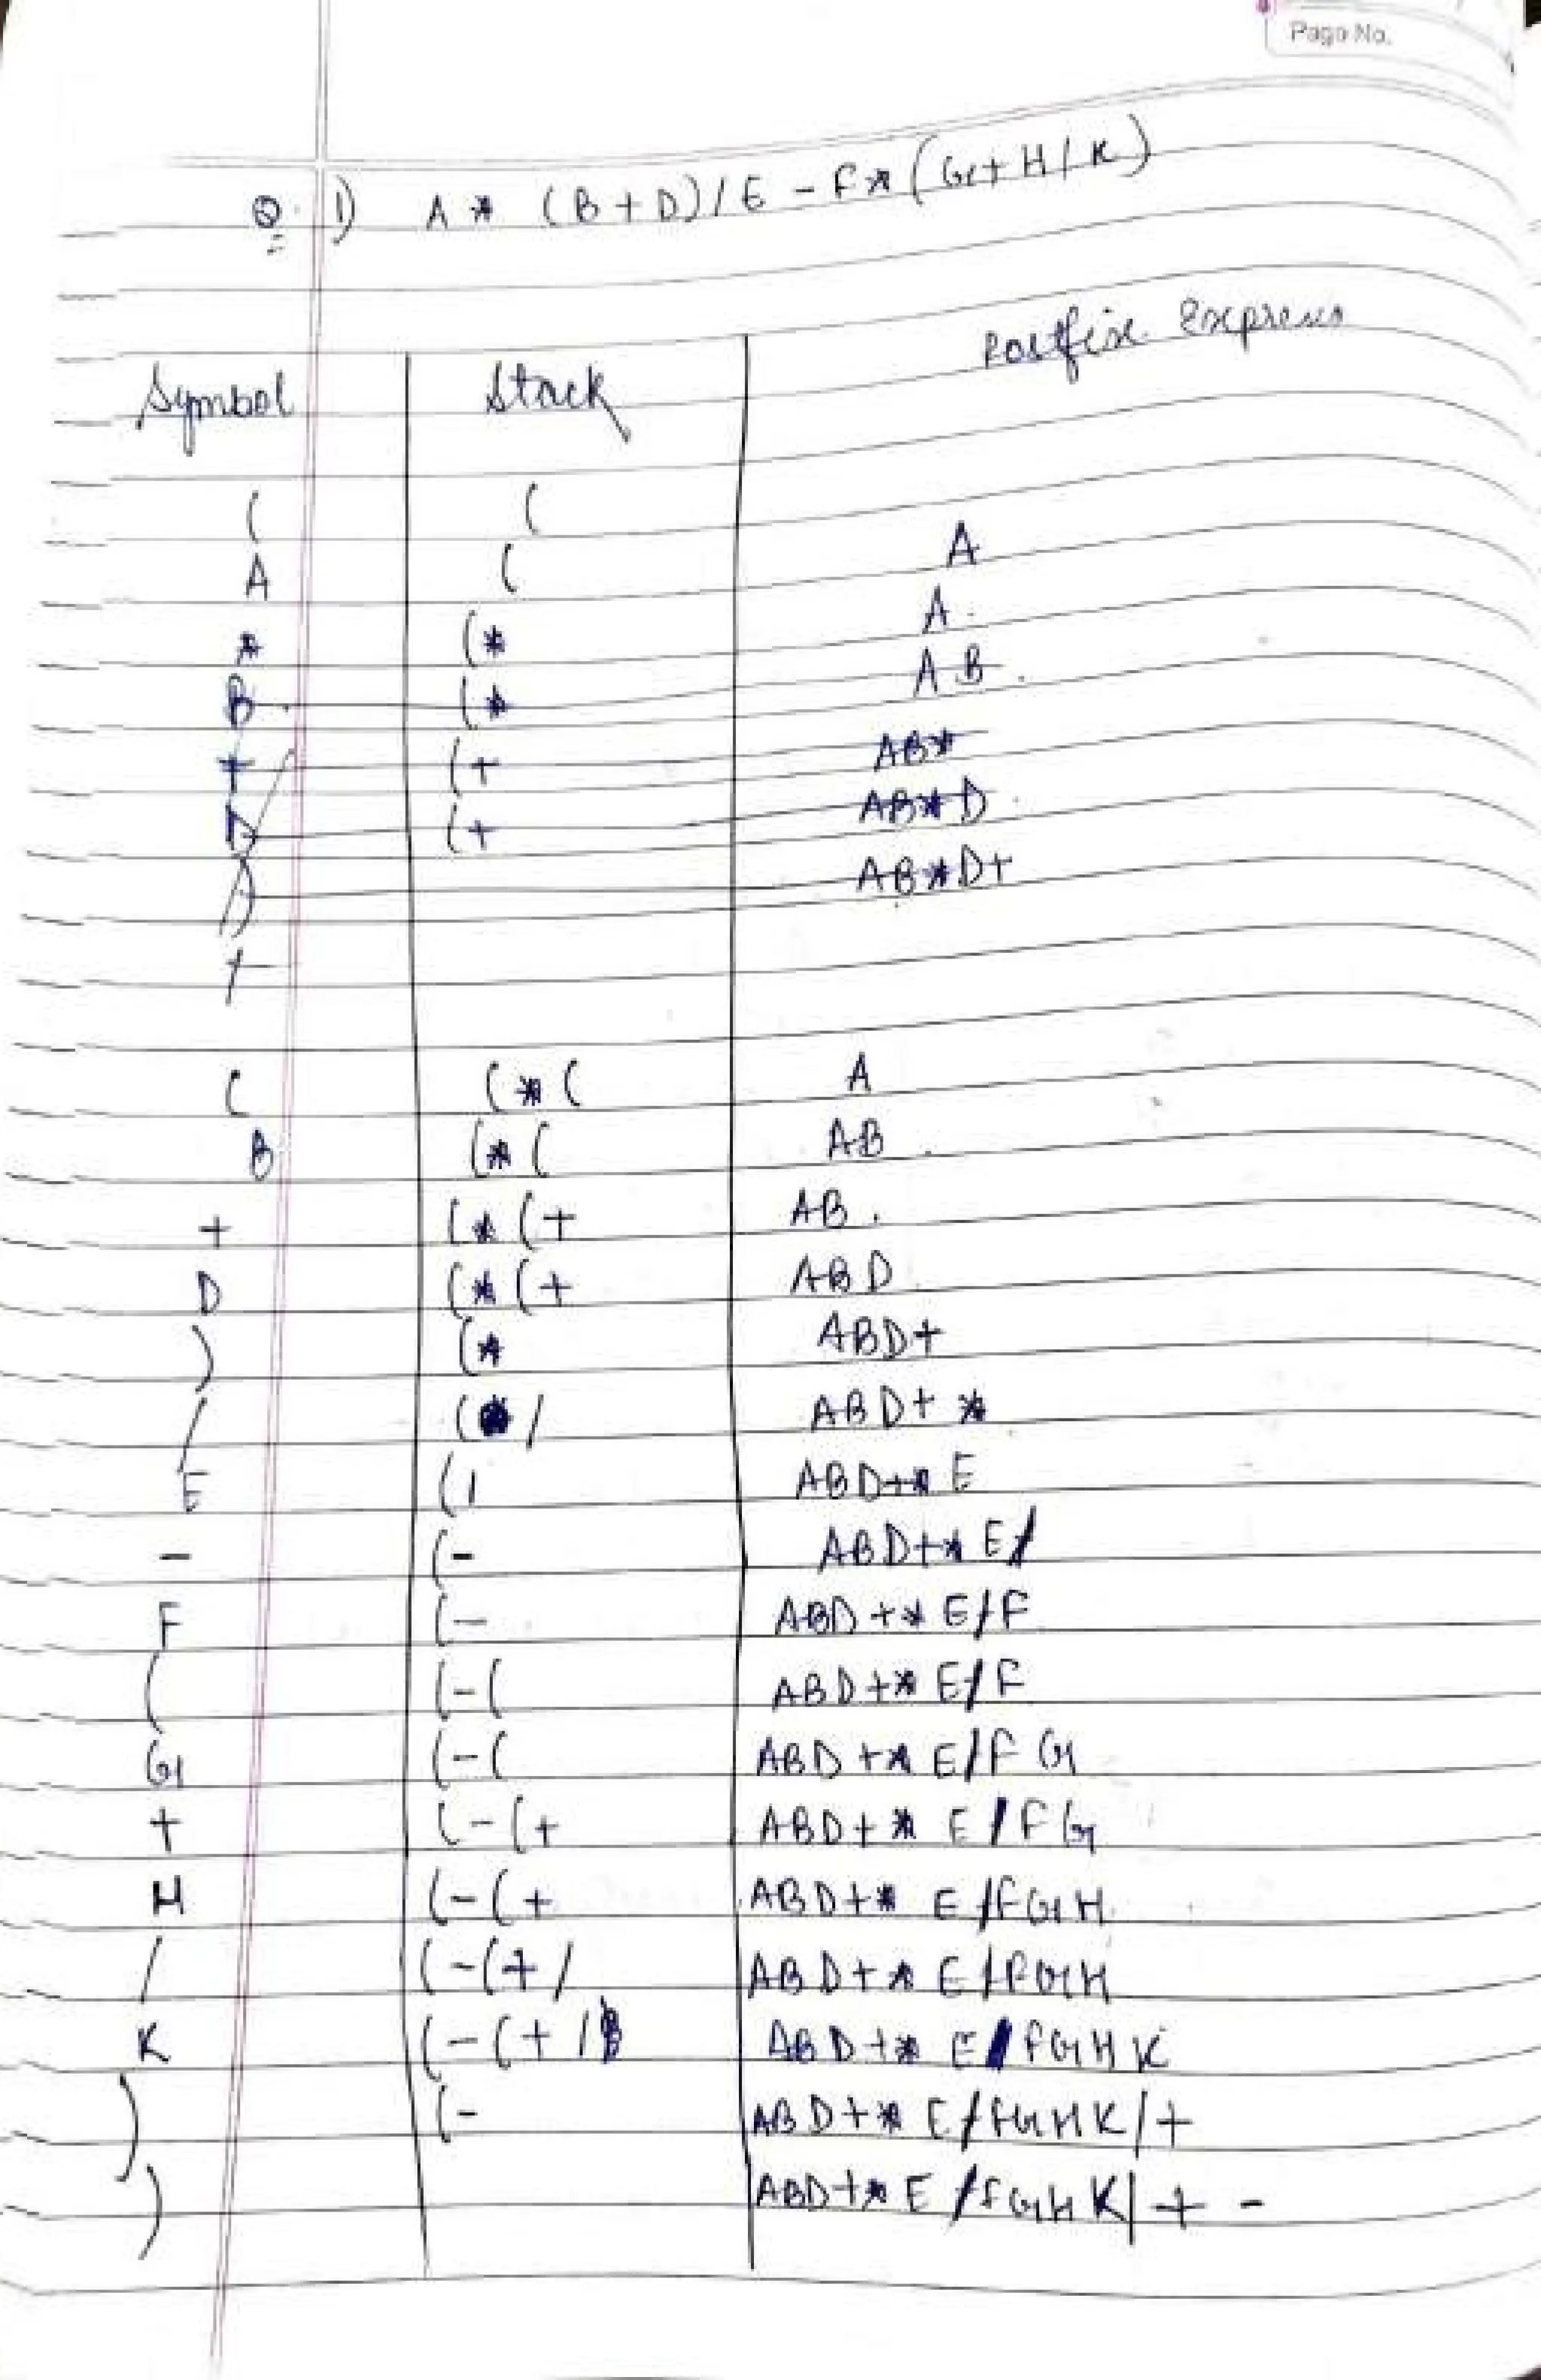 Page No.
Q. 1) A * (B + D) / E - F * (G + H / K)
Symbol Stack Postfix Express
( (
A ( A
* (* A
B (* AB
+ (+ AB*
D (+ AB*D
) AB*D+
/
( (*( A
B (*( AB
+ (*(+ AB
D (*(+ ABD
) (* ABD+
/ (/ ABD+*
E (/ ABD+*E
- (- ABD+*E/
F (- ABD+*E/F
( (-( ABD+*E/F
G (-( ABD+*E/FG
+ (-(+ ABD+*E/FG
H (-(+ ABD+*E/FGH
/ (-(+/ ABD+*E/FGH
K (-(+/ ABD+*E/FGHK
) (- ABD+*E/FGHK/+
) ABD+*E/FGHK/+-